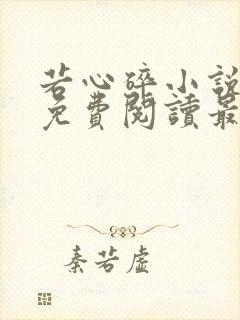 若心碎小說
免費閱讀最
秦若虛